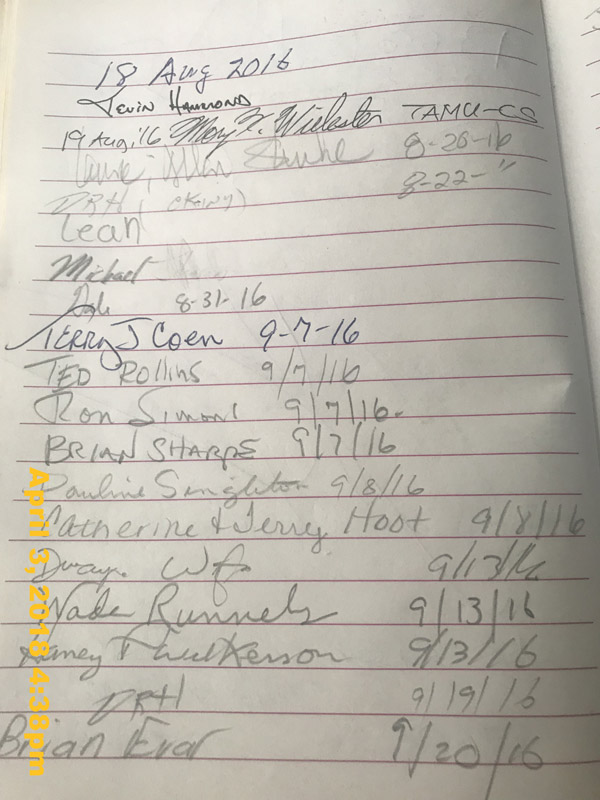 18 Aug 2016
Tevin Hammond
19 Aug, '16 Mary F. TAMU-CS
8-20-16
DRH (King) 8-22-"
Leah
Michael
8-31-16
Terry J Coen 9-7-16
TED Rollins 9/7/16
Ron Simons 9/7/16.
BRIAN SHARPE 9/7/16
Pauline Singleton 9/8/16
Catherine & Jerry Hoot 9/8/16
9/13/16
Wade Runnels 9/13/16
9/13/16
DRH 9/19/16
Brian 9/20/16
April 3, 2018 4:38pm